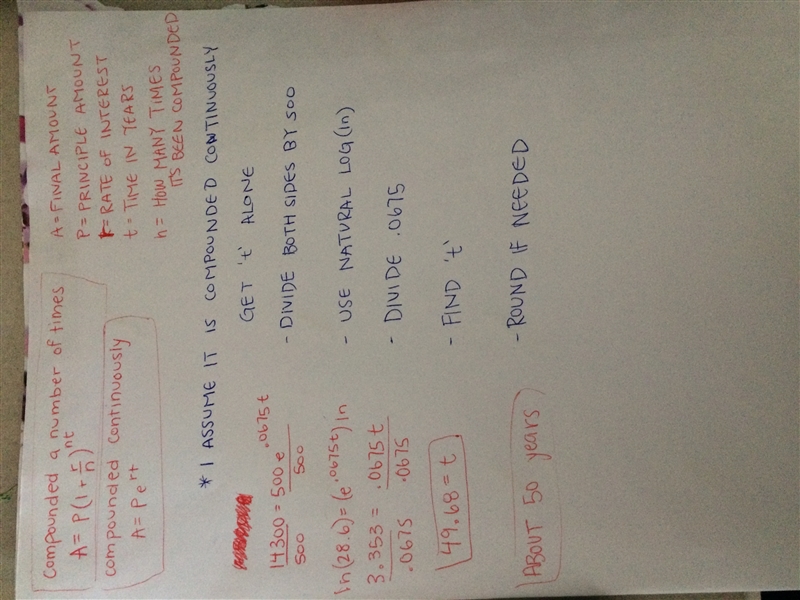 Compounded a number of times
A = P(1 + r/n)^nt
compounded continuously
A = Pe^rt
A = FINAL AMOUNT
P = PRINCIPLE AMOUNT
r = RATE OF INTEREST
t = TIME IN YEARS
n = HOW MANY TIMES
ITS BEEN COMPOUNDED
* I ASSUME IT IS COMPOUNDED CONTINUOUSLY
GET 't' ALONE
14300/500 = 500e^.0675t/500 - DIVIDE BOTH SIDES BY 500
ln(28.6) = (e^.0675t) ln - USE NATURAL LOG (ln)
3.353/.0675 = .0675t/.0675 - DIVIDE .0675
49.68 = t - FIND 't'
ABOUT 50 years - ROUND IF NEEDED